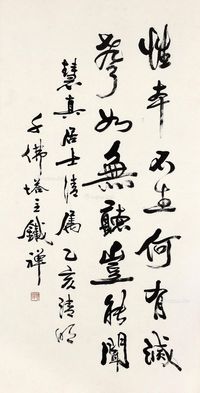 性本不生何有滅
聾如無聽豈能聞
慧真居士清屬乙亥清明
千佛塔主鐵禪